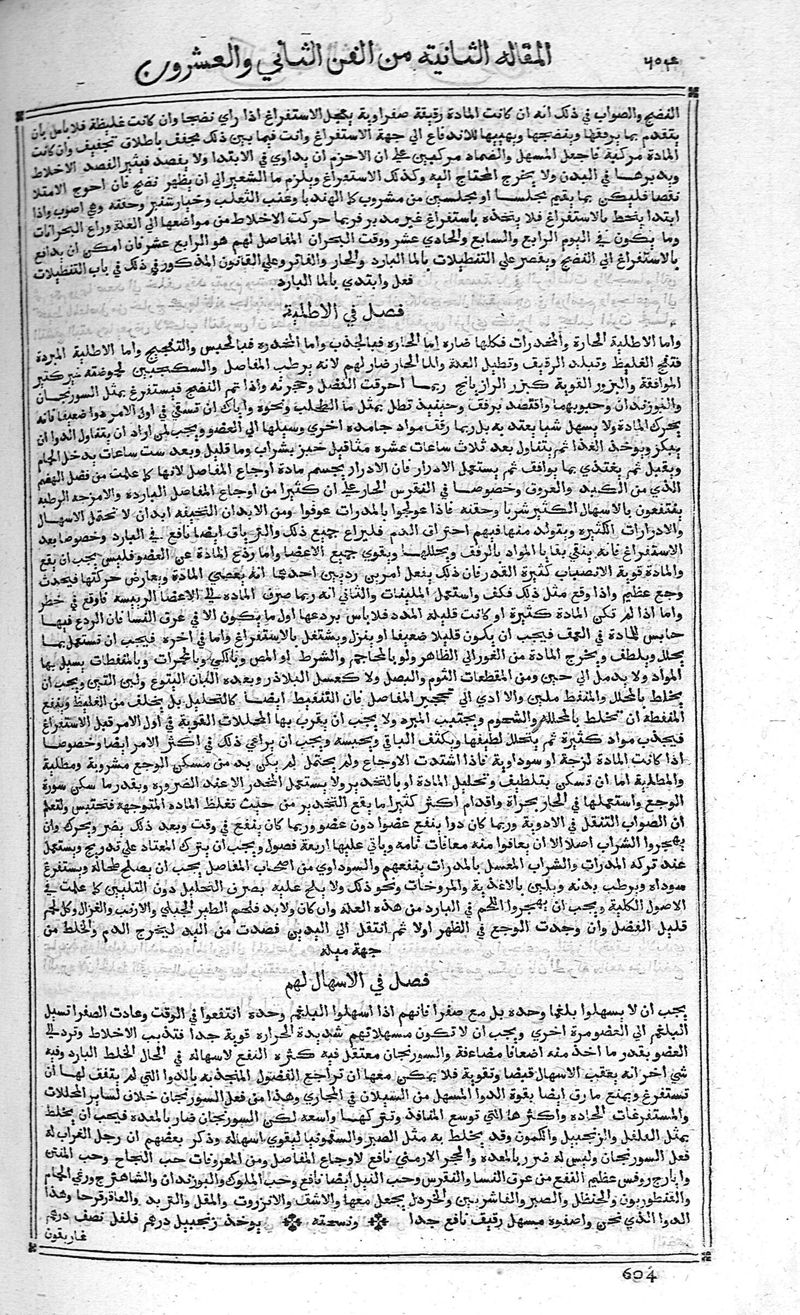 المقالة الثانية من الفن الثاني والعشرون
٦٠٤
النضج والصواب في ذلك انه ان كانت المادة رقيقة صفراوية يعجل الاستفراغ اذا راي نضجا وان كانت غليظة فلا باس بان
يتقدم بما يرققها وينضجها ويهييها للاندفاع الي جهة الاستفراغ وانت فيما بين ذلك مجفف باطلاق تجفيف وان كانت
المادة مركبة فاجعل المسهل والضماد مركبين علي ان الاحزم ان يداوي في الابتدا ولا يفصد فيثير الفصد الاخلاط
ويديرها في البدن ولا يخرج المحتاج اليه وكذلك الاستفراغ ويلزم ما الشعير الي ان يظهر نضج فان احوج الامتلا
نفضا فليكن بما يقيم مجلسا او مجلسين من مشروب كما الهندبا وعنب الثعلب وخيار شنبر وحقنه وهي اصوب واذا
ابتدا ينحط بالاستفراغ فلا يتخذه باستفراغ غير مدبر فربما حركت الاخلاط من مواضعها الي العلة وراع البحرانات
وما يكون في اليوم الرابع والسابع والحادي عشر ووقت البحران المفاصل لهم هو الرابع عشر فان امكن ان يدافع
بالاستفراغ الي النضج ويقصر علي التنطيلات بالما البارد والحار والفاتر وعلي القانون المذكور في ذلك في باب التنطيلات
فعل وابتدي بالما البارد
فصل في الاطلية
واما الاطلية الحارة والمخدرات فكلها ضاره اما الحاره فبالجذب واما المخدره فبالحبس والتفجيج واما الاطلية المبردة
فتفج الغليظ وتبلد الرقيق وتطيل العلة والما الحار ضار لهم لانه يرطب المفاصل والسكنجبين لحموضته غير كثير
الموافقة والبزور القوية كبزر الرازيانج ربما احرقت الفضل وحجرته واذا تم النضج فيستفرغ بمثل السورنجان
والبوزيدان وحبوبهما واقتصد برفق وحينيذ تطل بمثل ما الطحلب ونحوه واياك ان تسقي في اول الامر دوا ضعيفا فانه
يحرك المادة ولا يسهل شيا يعتد به بل ربما رقق مواد جامده اخري وسيلها الي العضو ويجب لمن اراد ان يتناول الدوا ان
يبكر ويوخر الغذا ثم يتناول بعد ثلاث ساعات عشره مثاقيل خبز بشراب وما قليل وبعد ست ساعات يدخل الحمام
ويقيل ثم يغتذي بما يوافق ثم يستعمل الادرار فان الادرار يحسم مادة اوجاع المفاصل لانها كما علمت من فضل الهضم
الذي من الكبد والعروق وخصوصا في النقرس الحار علي ان كثيرا من اوجاع المفاصل الباردة والامزجة الرطبة
ينتفعون بالاسهال الكثير شربا وحقنه فاذا عولجوا بالمدرات عوفوا ومن الابدان النحيفه ابدان لا تحتمل الاسهال
والادرارات الكثيره ويتولد منها فيهم احتراق الدم فليراع جميع ذلك والترياق ايضا نافع في البارد وخصوصا بعد
الاستفراغ فانه ينقي بقايا المواد بالرفق ويحللها ويقوي جميع الاعضا واما ردع المادة عن العضو فليس يجب ان يقع
والمادة قوية الانصباب كثيرة القدر فان ذلك يفعل امرين رديين احدهما انه يعصي المادة ويعارض حركتها فيحدث
وجع عظيم واذا وقع مثل ذلك فكف واستعمل الملينات والثاني انه ربما صرف المادة الي الاعضا الرييسه فاوقع في خطر
واما اذا لم تكن المادة كثيرة او كانت قليلة المدد فلا باس بردعها اول ما يكون الا في عرق النسا فان الردع فيها
حابس للمادة في العمق فيجب ان يكون قليلا ضعيفا او يترك ويشتغل بالاستفراغ واما في اخره فيجب ان تستعمل بما
يحلل ويلطف ويخرج المادة من الغور الي الظاهر ولو بالمحاجم والشرط او المص وبالكي وبالمحمرات وبالمنفطات يسيل بها
المواد ولا يدمل الي حين ومن المنفطات الثوم والبصل ولا كعسل البلاذر وبعده البان اليتوع ولبن التين ويجب ان
يخلط بالمحلل والمنفط ملين والا ادي الي تحجير المفاصل فان التنفيط ايضا كالتحليل بل يخلف من الغليظ وينفع
المنفطه ان تخلط بالمحلله والشحوم ويجتنب المبرده ولا يجب ان يقرب بها المحللات القوية في اول الامر قبل الاستفراغ
فيجذب مواد كثيرة ثم يتحلل لطيفها ويكثف الباقي ويحبسه ويجب ان يراعي ذلك في اكثر الامر ايضا وخصوصا
اذا كانت المادة لزجة او سوداوية فاذا اشتدت الاوجاع ولم يحتمل لم يكن بد من مسكن الوجع مشروبة ومطلية
والمطلية اما ان تسكن بتلطيف وتحليل المادة او بالتخدير ولا يستعمل المخدر الا عند الضروره وبقدر ما سكن سورة
الوجع واستعملها في الحار بجراة واقدام اكثر كثيرا ما يقع التخدير من حيث تغلظ المادة المتوجهة فتحتبس ولتعلم
ان الصواب التنقل في الادوية وربما كان دوا ينفع عضوا دون عضو وربما كان ينفع في وقت وبعد ذلك يضر ويحرك وان
يهجروا الشراب اصلا الا ان يعافوا منه معافات تامه وياتي عليها اربعة فصول ويجب ان يترك المعتاد علي تدريج ويستعمل
عند تركه المدرات والشراب المعسل بالمدرات ينفعهم والسوداوي من اصحاب المفاصل يجب ان يصلح طحاله ويستفرغ
سوداه ويرطب بدنه ويلين بالاغذية والمروخات ونحو ذلك ولا يلح عليه بصرف التحليل دون التليين كما علمت في
الاصول الكلية ويجب ان يهجروا اللحم في البارد من هذه العلة وان كان ولا بد فلحم الطير الجبلي والارنب والغزال وكل لحم
قليل الفضل وان وجدت الوجع في الظهر اولا ثم انتقل الي اليدين فصدت من اليد ليخرج الدم والخلط من
جهة ميله
فصل في الاسهال لهم
يجب ان لا يسهلوا بلغما وحده بل مع صفرا فانهم اذا اسهلوا البلغم وحده انتفعوا في الوقت وعادت الصفرا تسيل
البلغم الي العضو مرة اخري ويجب ان لا تكون مسهلاتهم شديدة الحراره قوية جدا فتذيب الاخلاط وترد الي
العضو بقدر ما اخذ منه اضعافا مضاعفة والسورنجان معتقل فيه كثره النفع لاسهاله في الحال الخلط البارد وفيه
شي اخر انه يعقب الاسهال قبضا وتقوية فلا يمكن معها ان تراجع الفضول المنجذبه بالدوا التي لم يتفق لها ان
تستفرغ ويمنع ما رق ايضا بقوة الدوا المسهل من السيلان في المجاري وهذا من فعل السورنجان خلاف لساير المحللات
والمستفرغات الحاده واكثرها التي توسع المنافذ وتتركها واسعه لكن السورنجان ضار بالمعدة فيجب ان يخلط
بمثل الفلفل والزنجبيل والكمون وقد يخلط به مثل الصبر والسقمونيا ليقوي اسهاله وذكر بعضهم ان رجل الغراب له
فعل السورنجان وليس له ضرر بالمعدة والحجر الارمني نافع لاوجاع المفاصل ومن المعروفات حب النجاح وحب المنتن
وايارج روفس عظيم النفع من عرق النسا والنقرس وحب النيل ايضا نافع وحب الملوك والبوزيدان والشاهترج ورعي الحمام
والقنطوريون والحنظل والصبر والفاشرين والخردل يجعل معها والاشق والانزروت والمقل والتربد والعاقرقرحا وهذا
الدوا الذي نحن واصفوه مسهل رقيق نافع جدا ونسخته يوخذ زنجبيل درهم فلفل نصف درهم
غاريقون
604